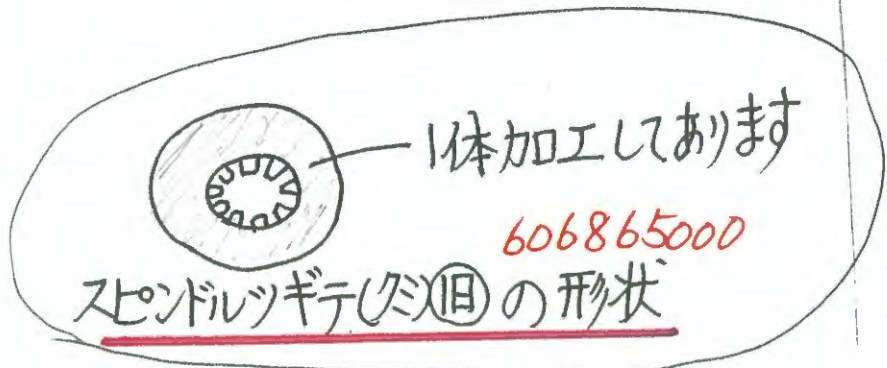 1体加工してあります
606865000
スピンドルツギテ(クミ)旧の形状